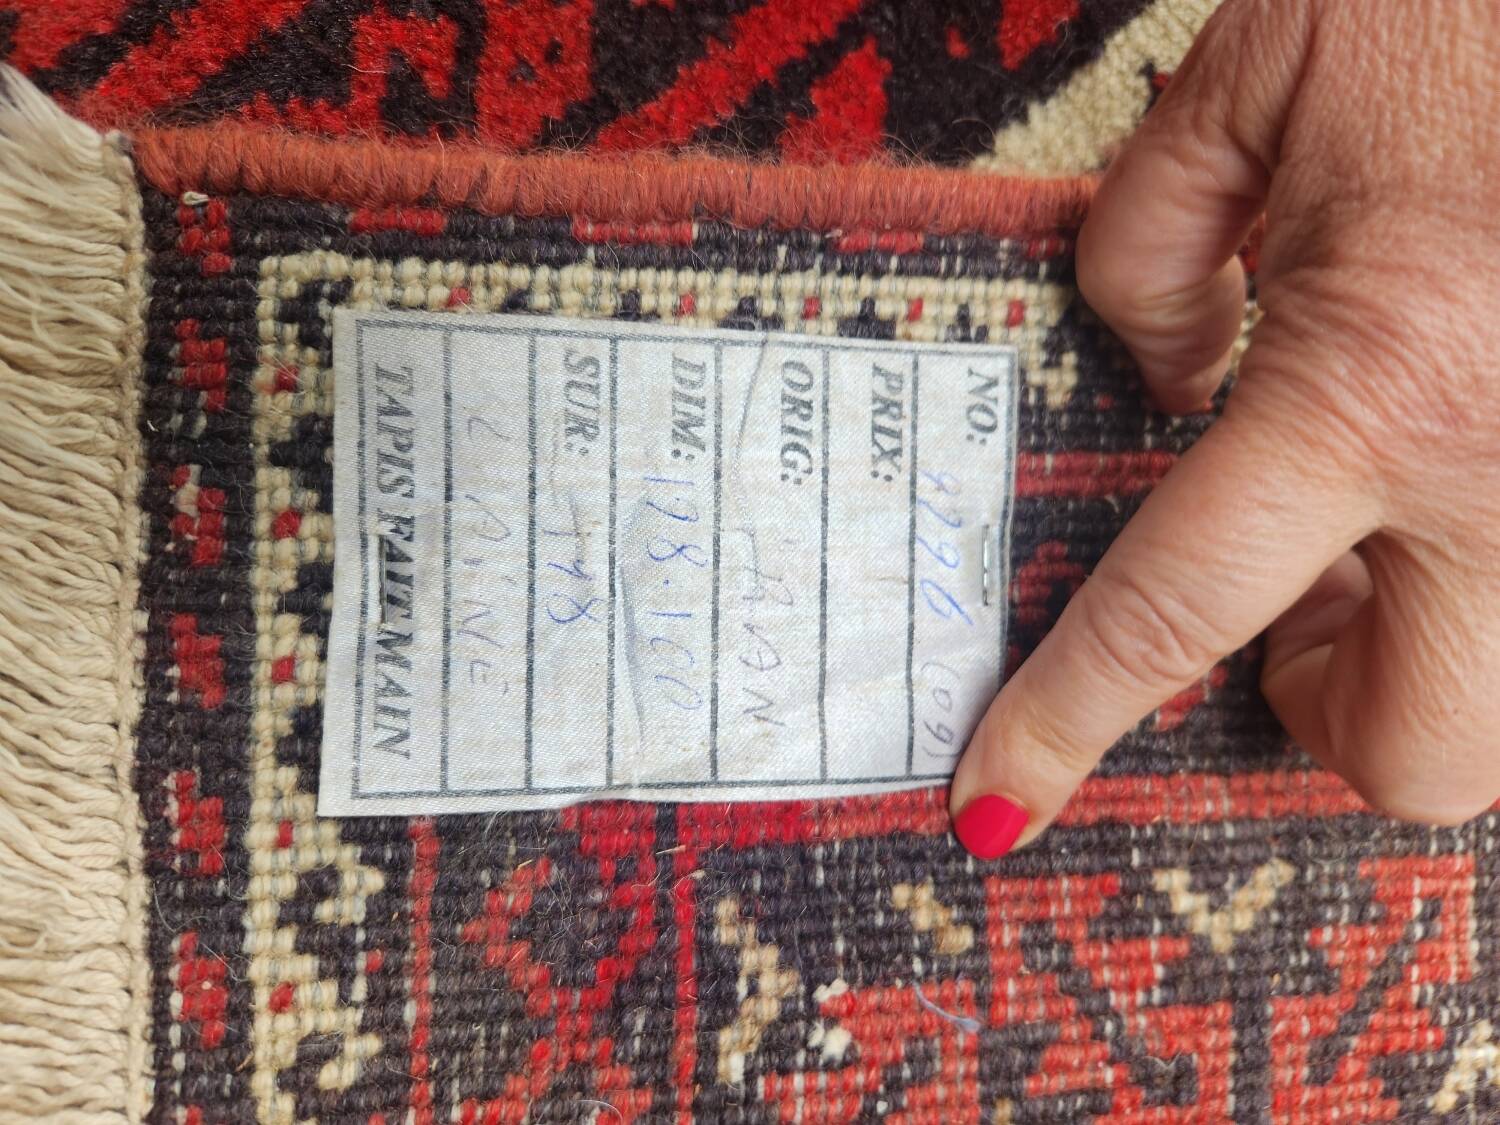 NO: 9796 (09)
PRIX:
ORIG: IRAN
DIM: 178.100
SUR: 178
LAINE
TAPIS FAIT MAIN